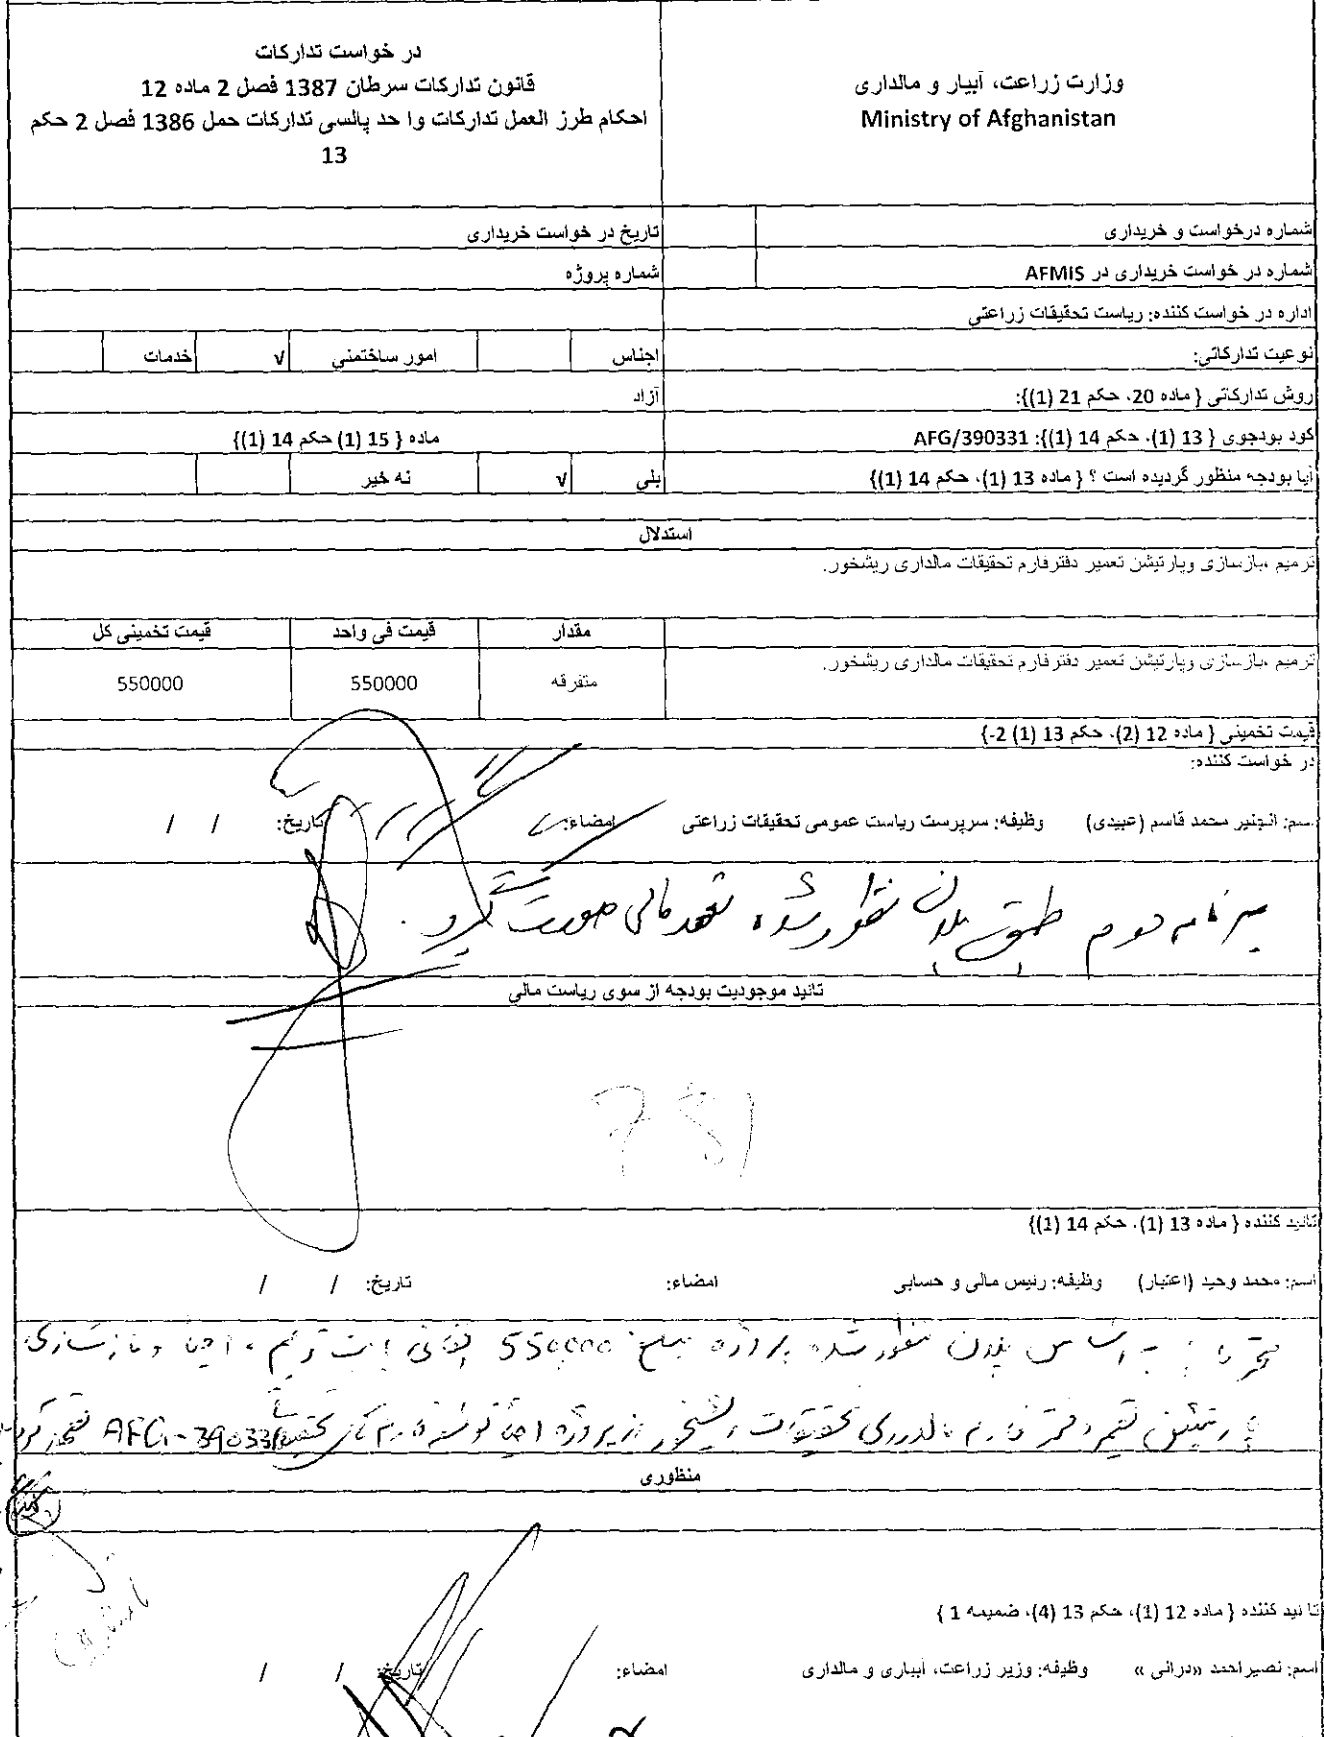 وزارت زراعت، آبیار و مالداری
Ministry of Afghanistan
در خواست تدارکات
قانون تدارکات سرطان 1387 فصل 2 ماده 12
احکام طرز العمل تدارکات وا حد پالسی تدارکات حمل 1386 فصل 2 حکم
13
شماره درخواست و خریداری
تاریخ در خواست خریداری
شماره در خواست خریداری در AFMIS
شماره پروژه
اداره در خواست کننده: ریاست تحقیقات زراعتی
نوعیت تدارکاتی: اجناس امور ساختمنی √ خدمات
روش تدارکاتی { ماده 20، حکم 21 (1)}: آزاد
کود بودجوی { 13 (1)، حکم 14 (1)}: AFG/390331 ماده { 15 (1) حکم 14 (1)}
آیا بودجه منظور گردیده است ؟ { ماده 13 (1)، حکم 14 (1)} بلی √ نه خیر
استدلال
ترمیم ،بازسازی وپارتیشن تعمیر دفترفارم تحقیقات مالداری ریشخور.
مقدار قیمت فی واحد قیمت تخمینی کل
ترمیم ،بازسازی وپارتیشن تعمیر دفترفارم تحقیقات مالداری ریشخور. متفرقه 550000 550000
قیمت تخمینی { ماده 12 (2)، حکم 13 (1) 2-}
در خواست کننده:
اسم: انجنیر محمد قاسم (عبیدی) وظیفه: سرپرست ریاست عمومی تحقیقات زراعتی امضاء: تاریخ: / /
طبق پلان منظور شده تعهد مالی صورت گیرد.
تائید موجودیت بودجه از سوی ریاست مالی
781
تائید کننده { ماده 13 (1)، حکم 14 (1)}
اسم: محمد وحید (اعتبار) وظیفه: رئیس مالی و حسابی امضاء: تاریخ: / /
اساس پلان منظور شده پروژه مبلغ 550000 افغانی بابت ترمیم، احیا و بازسازی
پارتیشن تعمیر دفتر فارم مالداری تحقیقات ریشخور از پروژه احیا AFG-390331
منظوری
تا ئید کننده { ماده 12 (1)، حکم 13 (4)، ضمیمه 1 }
اسم: نصیراحمد «درانی » وظیفه: وزیر زراعت، آبیاری و مالداری امضاء: تاریخ: / /